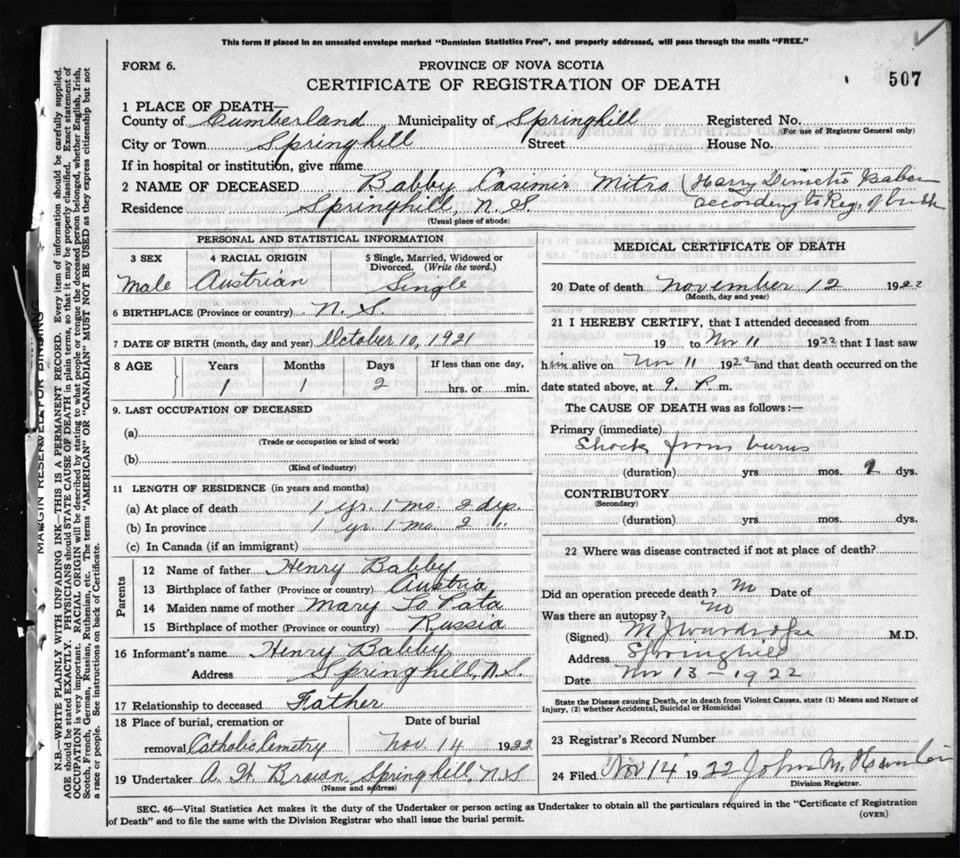 This form if placed in an unsealed envelope marked "Dominion Statistics Free", and properly addressed, will pass through the mails "FREE."
FORM 6.
PROVINCE OF NOVA SCOTIA
CERTIFICATE OF REGISTRATION OF DEATH
507
1 PLACE OF DEATH—
County of Cumberland Municipality of Springhill Registered No.
(For use of Registrar General only)
City or Town Springhill Street House No.
If in hospital or institution, give name
2 NAME OF DECEASED Babby Casimir Mitro (Harry Dimetro
Residence Springhill, N.S. according to Reg. of birth
(Usual place of abode)
PERSONAL AND STATISTICAL INFORMATION
3 SEX 4 RACIAL ORIGIN 5 Single, Married, Widowed or Divorced. (Write the word.)
Male Austrian Single
6 BIRTHPLACE (Province or country) N.S.
7 DATE OF BIRTH (month, day and year) October 10, 1921
8 AGE Years Months Days If less than one day,
1 1 2 hrs. or min.
9. LAST OCCUPATION OF DECEASED
(a)
(Trade or occupation or kind of work)
(b)
(Kind of industry)
11 LENGTH OF RESIDENCE (in years and months)
(a) At place of death 1 yr. 1 mo. 2 dys.
(b) In province 1 yr. 1 mo. 2 "
(c) In Canada (if an immigrant)
Parents
12 Name of father Henry Babby
13 Birthplace of father (Province or country) Austria
14 Maiden name of mother Mary
15 Birthplace of mother (Province or country) Russia
16 Informant's name Henry Babby
Address Springhill, N.S.
17 Relationship to deceased Father
18 Place of burial, cremation or Date of burial
removal Catholic Cemetry Nov. 14 1922
19 Undertaker A. H. Brown Springhill, N.S
(Name and address)
MEDICAL CERTIFICATE OF DEATH
20 Date of death November 12 1922
(Month, day and year)
21 I HEREBY CERTIFY, that I attended deceased from
19 to Nov 11 1922 that I last saw
him alive on Nov 11 1922 and that death occurred on the
date stated above, at 9. P. m.
The CAUSE OF DEATH was as follows:—
Primary (immediate)
Shock from burns
(duration) yrs. mos. 2 dys.
CONTRIBUTORY
(Secondary)
(duration) yrs. mos. dys.
22 Where was disease contracted if not at place of death?
Did an operation precede death? No Date of
Was there an autopsy? No
(Signed) M J Wardrope M.D.
Address Springhill
Date Nov 13 - 1922
State the Disease causing Death, or in death from Violent Causes, state (1) Means and Nature of
Injury, (2) whether Accidental, Suicidal or Homicidal
23 Registrar's Record Number
24 Filed Nov 14 1922 John M.
Division Registrar.
SEC. 46—Vital Statistics Act makes it the duty of the Undertaker or person acting as Undertaker to obtain all the particulars required in the "Certificate of Registration
of Death" and to file the same with the Division Registrar who shall issue the burial permit.
(OVER)
MARGIN RESERVED FOR BINDING
N.B.—WRITE PLAINLY WITH UNFADING INK—THIS IS A PERMANENT RECORD. Every item of information should be carefully supplied.
AGE should be stated EXACTLY. PHYSICIANS should STATE CAUSE OF DEATH in plain terms, so that it may be properly classified. Exact statement of
OCCUPATION is very important. RACIAL ORIGIN will be described by stating to what people or tongue the deceased person belonged, whether English, Irish,
Scotch, French, German, Russian, Ruthenian, etc. The terms "AMERICAN" OR "CANADIAN" MUST NOT BE USED as they express citizenship but not
a race or people. See instructions on back of Certificate.